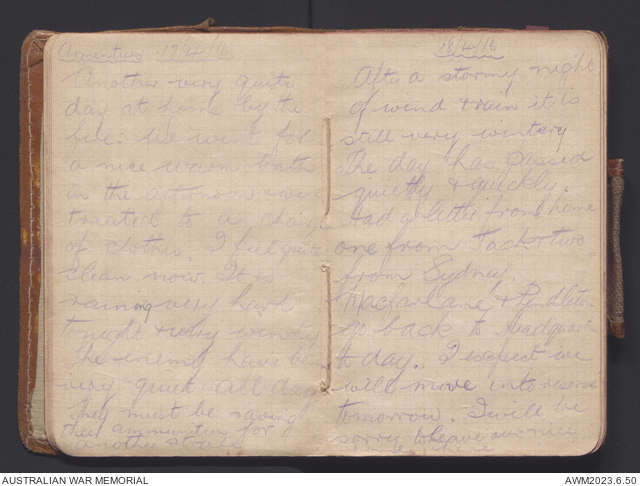 Armentieres 17/4/16
Another very quite
day at home by the
fire. We went for
a nice warm bath
in the afternoon & were
treated to a change
of clothes. I feel quite
clean now. It is
raining very hard
tonight & very windy
The enemy have been
very quiet all day
They must be saving
their ammunition for
another strafe
18/4/16
After a stormy night
of wind & rain it is
still very wintery
The day has passed
quietly & quickly.
Had a letter from home
one from Jack & two
from Sydney.
Macfarlane & Pendleton
go back to headquarters
to day. I expect we
will move into reserve
tomorrow. I will be
sorry to leave our nice
home here
AUSTRALIAN WAR MEMORIAL
AWM2023.6.50